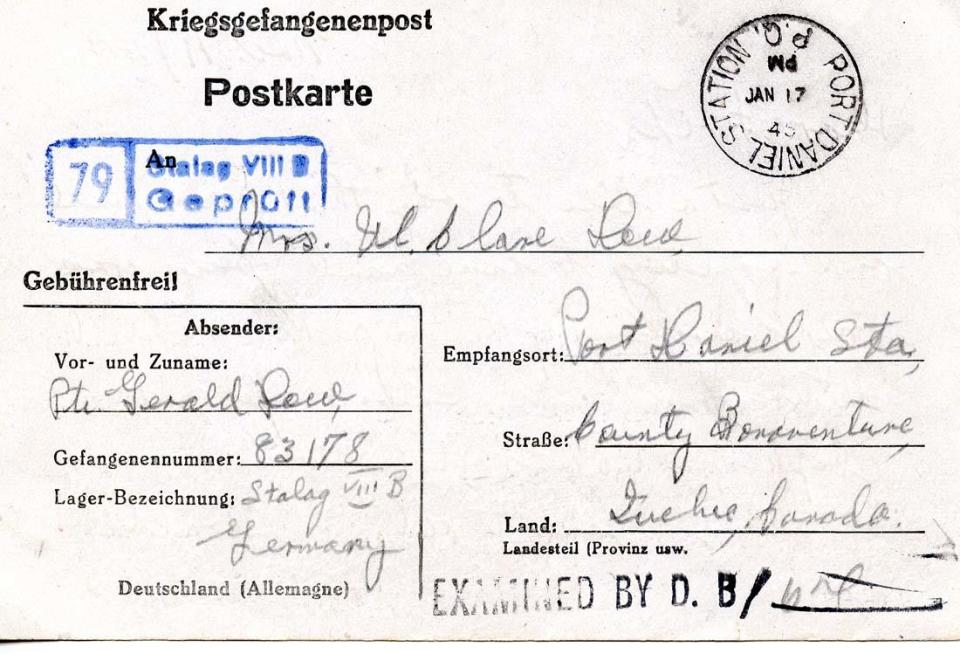 Kriegsgefangenenpost
Postkarte
PORT DANIEL STATION P.Q.
PM
JAN 17
45
79
An
Stalag VIII B
Geprüft
Mrs. Wm. Clare Dow
Gebührenfrei!
Absender:
Vor- und Zuname:
Pte. Gerald Dow,
Gefangenennummer: 83178
Lager-Bezeichnung: Stalag VIII B
Germany
Deutschland (Allemagne)
Empfangsort: Port Daniel Sta,
Straße: County Bonaventure,
Land: Quebec, Canada.
Landesteil (Provinz usw.
EXAMINED BY D. B/